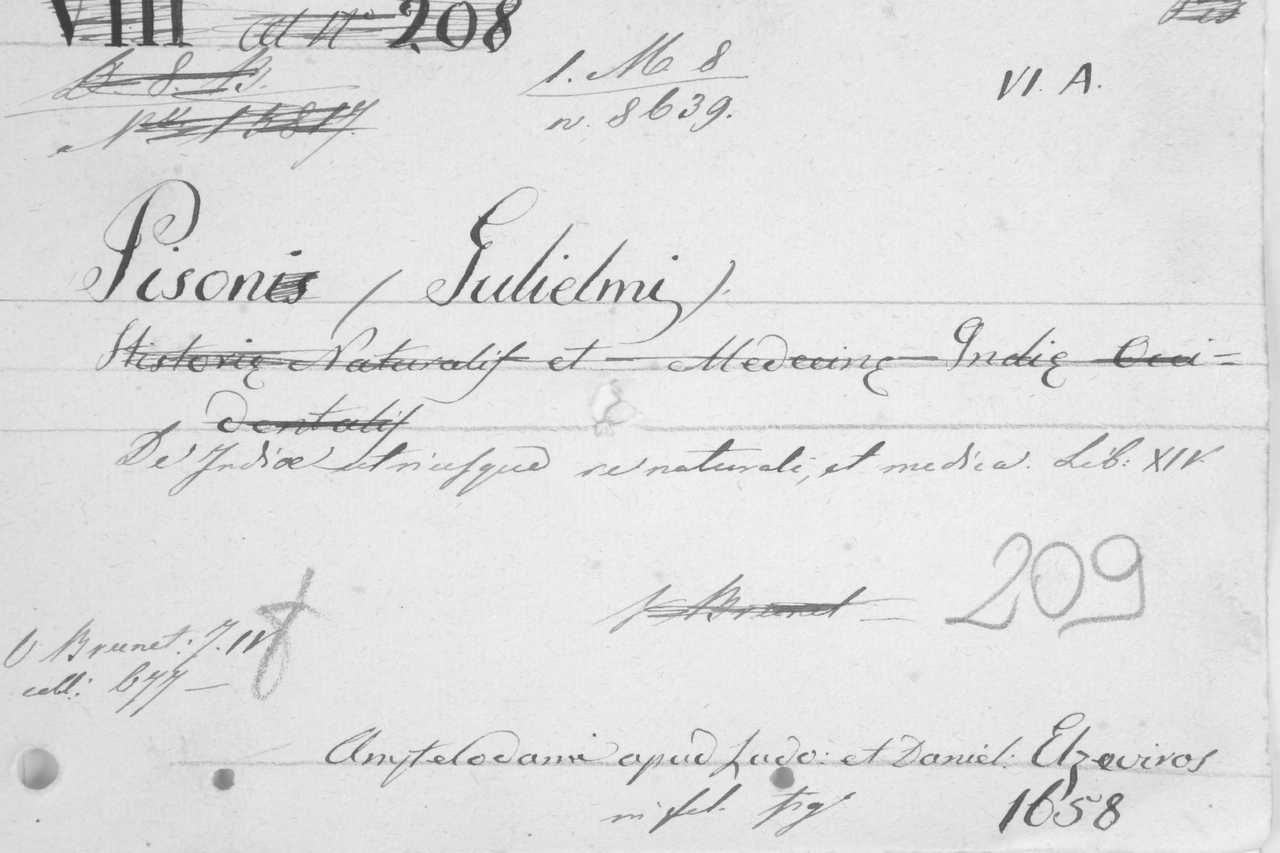 VIII ad N° 208
D. 8. B.
N° 15817.
1. M. 8
n. 8639.
VI. A.
Pisonis (Gulielmi)
Historię Naturalis et Medecinę Indię Occi-
dentalis
De Indiæ utriusque re naturali, et medica. Lib: XIV
209
V Brunet
V Brunet: T. IV
coll: 677
Amstelodami apud Ludo: et Daniel: Elzeviros
in fol. fig
1658